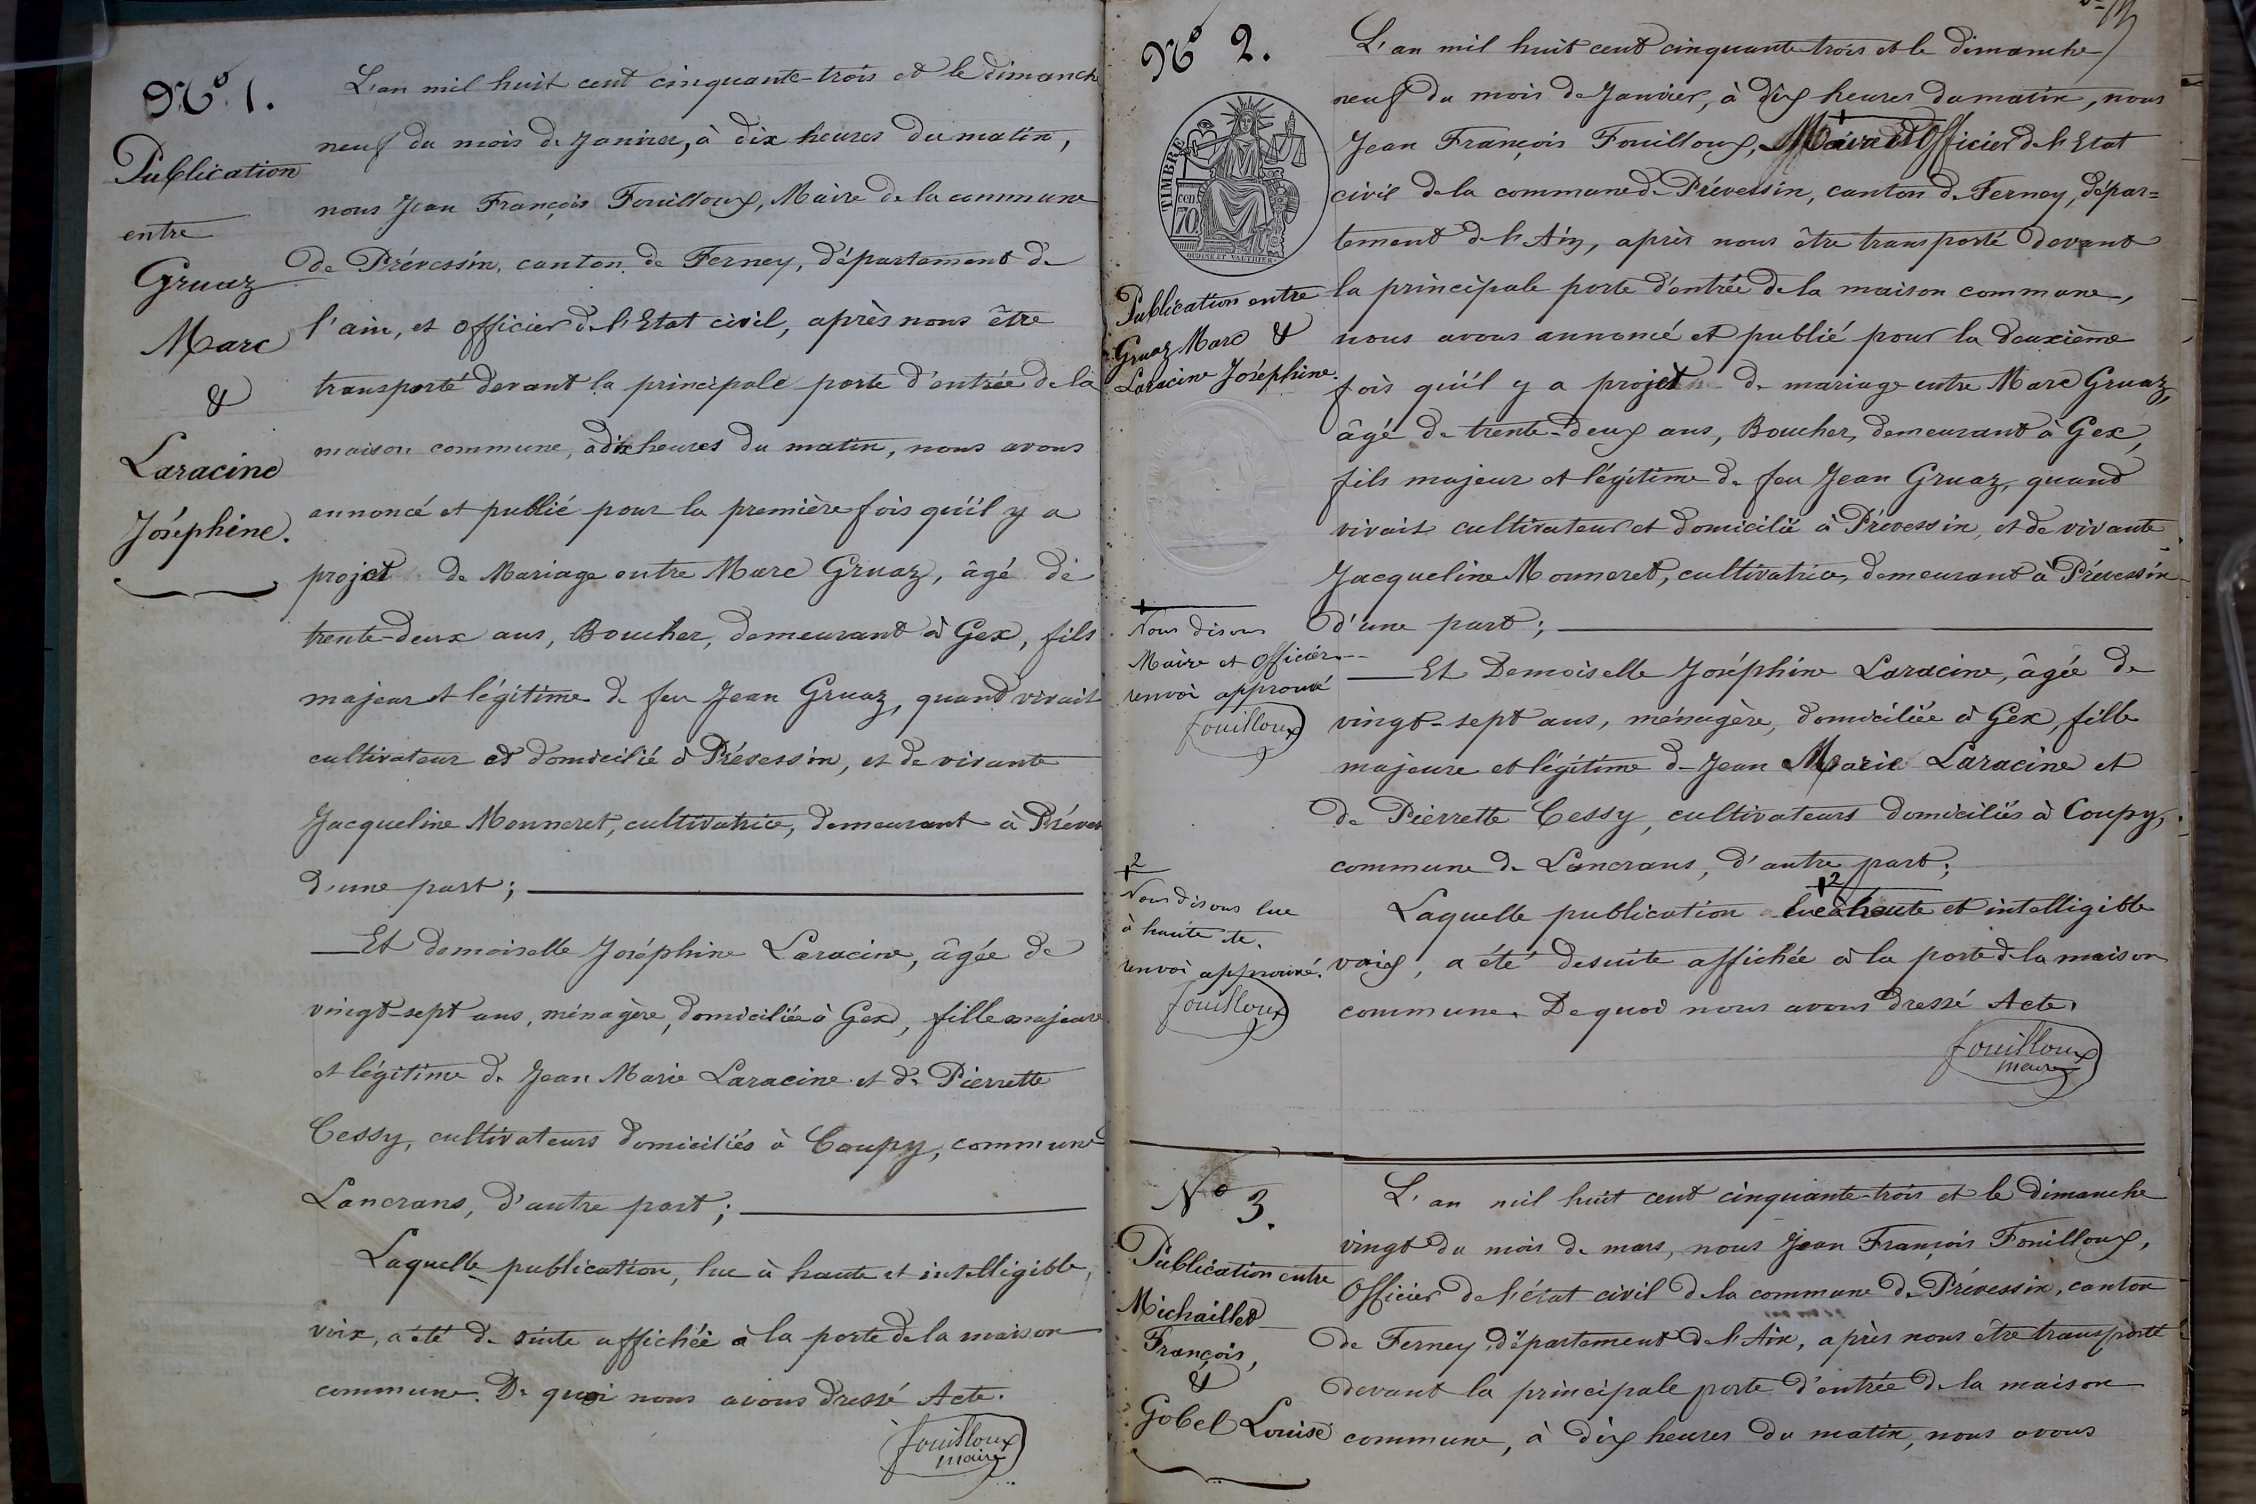 Nº 1.
Publication
entre
Gruaz
Marc
&
Laracine
Joséphine.
L'an mil huit cent cinquante-trois et le dimanche
neuf du mois de Janvier, à dix heures du matin,
nous Jean François Fouilloux, Maire de la commune
de Prévessin, canton de Ferney, département de
l'ain, et officier de l'Etat civil, après nous être
transporté devant la principale porte d'entrée de la
maison commune, à dix heures du matin, nous avons
annoncé et publié pour la première fois qu'il y a
projet de Mariage entre Marc Gruaz, âgé de
trente-deux ans, Boucher, demeurant à Gex, fils
majeur et légitime de feu Jean Gruaz, quand vivait
cultivateur et domicilié à Prévessin, et de vivante
Jacqueline Monneret, cultivatrice, demeurant à Préves
d'une part;
Et demoiselle Joséphine Laracine, âgée de
vingt-sept ans, ménagère, domiciliée à Gex, fille majeure
et légitime de Jean Marie Laracine et de Pierrette
Cessy, cultivateurs domiciliés à Coupy, commune
Lancrans, d'autre part;
Laquelle publication, lue à haute et intelligible
voix, a été de suite affichée à la porte de la maison
commune. De quoi nous avons dressé Acte.
fouilloux
maire
Nº 2.
TIMBRE
cen
70
OUDINE ET VAUTHIER
Publication entre
Gruaz Marc &
Laracine Joséphine.
Nous disons
Maire et officier
renvoi approuvé
fouilloux
2
Nous disons lue
à haute te.
renvoi approuvé.
fouilloux
L'an mil huit cent cinquante trois et le dimanche
neuf du mois de Janvier, à dix heures du matin, nous
Jean François Fouilloux, Maire et Officier de l'Etat
civil de la commune de Prévessin, canton de Ferney, dépar=
tement de l'Ain, après nous être transporté devant
la principale porte d'entrée de la maison commune,
nous avons annoncé et publié pour la deuxième
fois qu'il y a projet de mariage entre Marc Gruaz,
âgé de trente-deux ans, Boucher, demeurant à Gex,
fils majeur et légitime de feu Jean Gruaz, quand
vivait cultivateur et domicilié à Prévessin, et de vivante
Jacqueline Monneret, cultivatrice, demeurant à Prévessin
d'une part;
Et Demoiselle Joséphine Laracine, âgée de
vingt-sept ans, ménagère, domiciliée à Gex, fille
majeure et légitime de Jean Marie Laracine et
de Pierrette Cessy, cultivateurs domiciliés à Coupy,
commune de Lancrans, d'autre part;
2
Laquelle publication lue à haute et intelligible
voix, a été desuite affichée à la porte de la maison
commune. De quoi nous avons dressé Acte.
fouilloux
maire
Nº 3.
Publication entre
Michaillet
François,
&
Gobel Louise
L'an mil huit cent cinquante-trois et le dimanche
vingt du mois de mars, nous Jean François Fouilloux,
Officier de l'état civil de la commune de Prévessin, canton
de Ferney, département de l'Ain, après nous être transporté
devant la principale porte d'entrée de la maison
commune, à dix heures du matin, nous avons